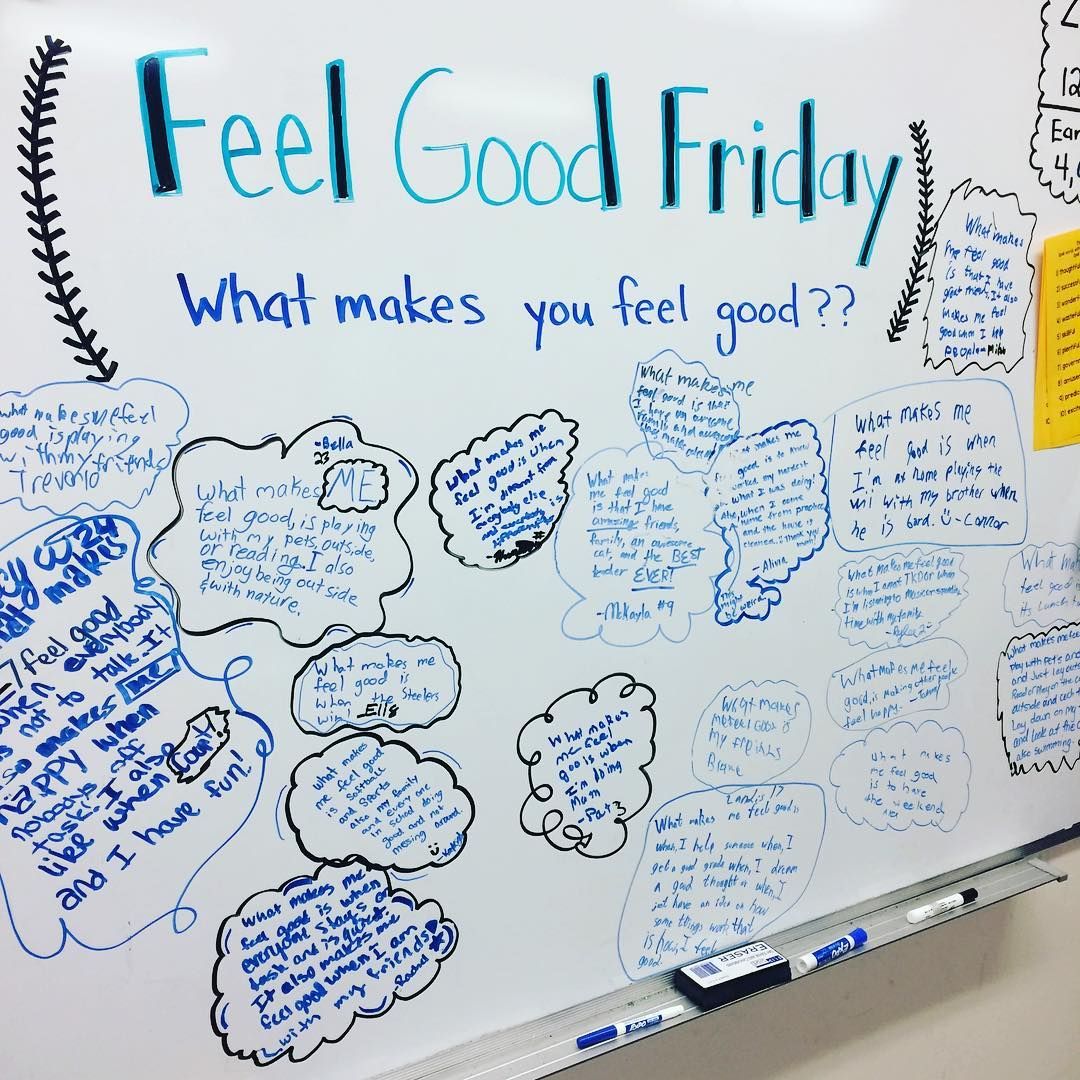 Feel Good Friday
What makes you feel good??
What makes
me feel good
is that I have
great friends. It also
makes me feel
good when I help
people- Mike
what makes me feel
good is playing
with my friends
Trevento
-Bella
23
ME
What makes
feel good, is playing
with my pets, outside,
or reading. I also
enjoy being outside
& with nature.
What makes me
feel good is when
I'm different
from
everybody else
What makes me
feel good is that
I have an awesome
family and
What makes
me feel good
is that I have
amazing friends,
family, an awesome
cat, and the BEST
teacher EVER!
-McKayla #9
good is to know
I worked my hardest
what I was doing!
Also, when I come
home from practice
and the house is
cleaned.
- Alivia
This
might
be weird
What makes me
feel good is when
I'm at home playing the
wii with my brother when
he is bord. -Connor
What makes me feel good
is when I am at TKD or when
I'm listening to Music or spending
time with my family
-Rylee 2
feel good
its lunch
What makes me feel
good, is making other people
feel happy.
What makes
me feel good
is to have
the weekend
What makes
me feel good is
my friends
Blane
What makes me feel
play with pets and
and just lay outs
Read or play on the
outside and each
lay down on my
and look at the
also swimming.
What makes me
feel good is
when the Steelers
win Ella
What makes
me feel good
is softball
and sports
also my family
and every one
in school doing
good and not
messing around
What makes
me feel
good is when
I'm doing
Mom
-Pat 3
Landis 17
What makes me feel good is
when, I help someone when, I
get a good grade when, I dream
a good thought or when, I
just have an idea on how
some things work that
is how, I feel
good.
feel good
when everybody
is not to talk. It
also makes me
happy when
nobodys off
task! I also
like when
and I have fun!
What makes me
feel good is when
everyone stays on
task and is quiet.
It also makes me
feel good when I am
with my friends
12
Ear
4,
ERASER
EXPO